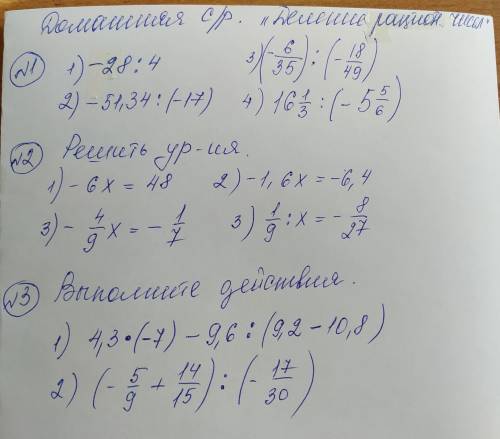 Домашняя с/р. "Деление рацион. чисел.
№1 1) -28:4 3) (-6/35) : (-18/49)
2) -51,34 : (-17) 4) 16 1/3 : (-5 5/6)
№2 Решить ур-ия.
1) -6x = 48 2) -1,6x = -6,4
3) -4/9 x = -1/7 3) 1/9 : x = -8/27
№3 Выполните действия.
1) 4,3•(-7) - 9,6 : (9,2 - 10,8)
2) (-5/9 + 14/15) : (-17/30)